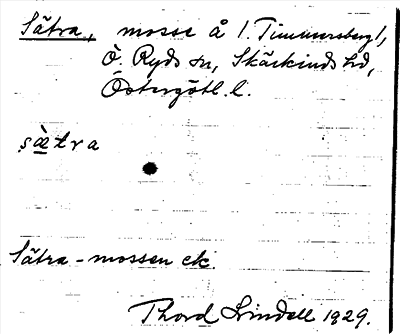 Sätra, mosse å /. Timmersberg/,
Ö. Ryds sn, Skärkinds hd,
Östergötl. l.
sätra
Sätra-mossen ek.
Thord Lindell 1929.